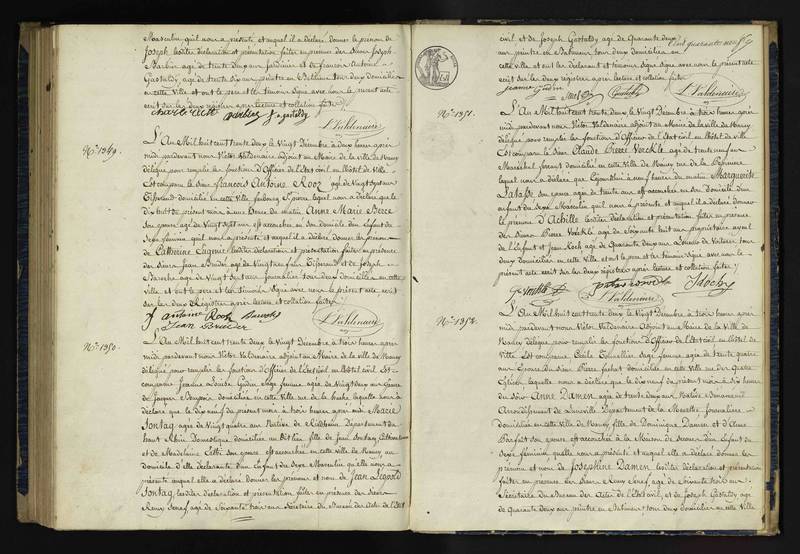 Masculin qu'il nous a présenté, et auquel il a déclaré donner le prénom de
Joseph lesdites déclaration et présentation faites en présence des Sieurs Joseph
Barbier agé de trente deux ans Jardinier et de François Antoine
Gastaldy, agé de trente six ans peintre en Bâtiment tous deux domiciliés
en cette Ville et ont le père et les témoins signé avec nous le présent acte
écrit sur les deux registres après lecture et collation faites
L. Valdenaire
No. 1949.
L'An Mil huit cent trente deux, le Vingt Décembre à deux heures après
midi pardevant nous Victor Valdenaire adjoint au Maire de la ville de Nancy
délégué pour remplir les fonctions d'Officier de l'état civil en l'hôtel de Ville
Est comparu le Sieur François Antoine Rooz agé de Vingt sept ans
Tisserand domicilié en cette Ville faubourg St Pierre lequel nous a déclaré que le
dix huit du présent mois à une heure du matin Anne Marie Berce
son épouse agée de Vingt sept ans est accouchée en son domicile d'un Enfant du
Sexe féminin qu'il nous a présenté et auquel il a déclaré donner les prénoms
de Catherine Eugénie lesdites déclaration et présentation faites en présence
des Sieurs Jean agé de Vingt neuf ans Tisserand et de Joseph
agé de Vingt sept ans Journalier tous deux domiciliés en cette
Ville et ont le père et les témoins signé avec nous le présent acte, écrit
sur les deux Régistres après lecture et collation faites
antoine Rooz
L. Valdenaire
No. 1950.
L'An Mil huit cent trente deux, le Vingt Décembre à trois heures après
midi, pardevant nous Victor Valdenaire adjoint au Maire de la ville de Nancy
délégué pour remplir les fonctions d'Officier de l'Etat civil en l'hôtel de Ville Est
comparue Jeanne Louise Gudin Sage femme agée de Vingt deux ans Epouse
de Jacques domiciliée en cette ville rue de la hache laquelle nous a
déclaré que le dix neuf du présent mois à trois heures après midi Marie
Sontag agée de Vingt quatre ans Native de Département du
haut Rhin Domestique domiciliée fille de Jean Sontag Cultivateur
et de Madelaine son épouse est accouchée en cette ville de Nancy, au
domicile d'elle déclarante d'un Enfant du Sexe Masculin qu'elle nous a
présenté auquel elle a déclaré donner les prénoms et nom de Jean Léopold
Sontag, lesdites déclaration et présentation faites en présence des Sieurs
Remy Senef agé de Soixante trois ans Secrétaire du Bureau des actes de l'Etat
Cent quarante neuf
civil et de Joseph Gastaldy agé de Quarante deux
ans peintre en Bâtiment tous deux domiciliés en
cette ville et ont les déclarant et témoins signé avec nous le présent acte
écrit sur les deux registres après lecture et collation faites
L. Valdenaire
No. 1951.
L'An Mil huit cent trente deux, le Vingt Décembre à trois heures après
midi pardevant nous Victor Valdenaire adjoint au Maire de la ville de Nancy
délégué pour remplir les fonctions d'Officier de l'état civil en l'hôtel de ville
Est comparu le Sieur Claude Pierre Voeckle agé de trente neuf ans
Maréchal ferrant domicilié en cette Ville de Nancy rue de la Pépinière
lequel nous a déclaré que heures du matin Marguerite
son épouse agée de trente six ans est accouchée en son domicile d'un
enfant du Sexe Masculin qu'il nous a présenté et auquel il a déclaré donner
le prénom d'Achille lesdites déclaration et présentation faites en présence
des Sieurs Pierre Voeckle agé de Soixante huit ans propriétaire ayeul
de l'Enfant et Jean Koch agé de Quarante deux ans Loueur de Voitures tous
deux domiciliés en cette Ville et ont le père et les témoins signé avec nous le
présent acte écrit sur les deux registres après lecture et collation faites
L. Valdenaire
No. 1952.
L'An Mil huit cent trente deux, le Vingt Décembre à trois heures après
midi, pardevant nous Victor Valdenaire Adjoint au Maire de la Ville de
Nancy délégué pour remplir les fonctions d'Officier de l'Etat civil en l'hôtel de
Ville Est comparue Cécile Sage femme agée de trente quatre
ans Epouse du Sieur Pierre domiciliée en cette Ville rue des Quatre
Eglises laquelle nous a déclaré que le dix neuf du présent mois à dix heures
du soir Anne Damen agée de trente deux ans Native
Arrondissement de Lunéville Département de la Meurthe Journalière
domiciliée en cette ville de Nancy fille de Dominique Damen et d'Anne
Barfait son épouse est accouchée à la Maison de Secours d'un Enfant du
Sexe féminin qu'elle nous a présenté et auquel elle a déclaré donner le
prénom et nom de Joséphine Damen lesdites déclaration et présentation
faites en présence des Sieurs Remy Senef agé de Soixante trois ans
Secrétaire du Bureau des Actes de l'Etat civil, et de Joseph Gastaldy agé
de Quarante deux ans peintre en Bâtiment tous deux domiciliés en cette Ville